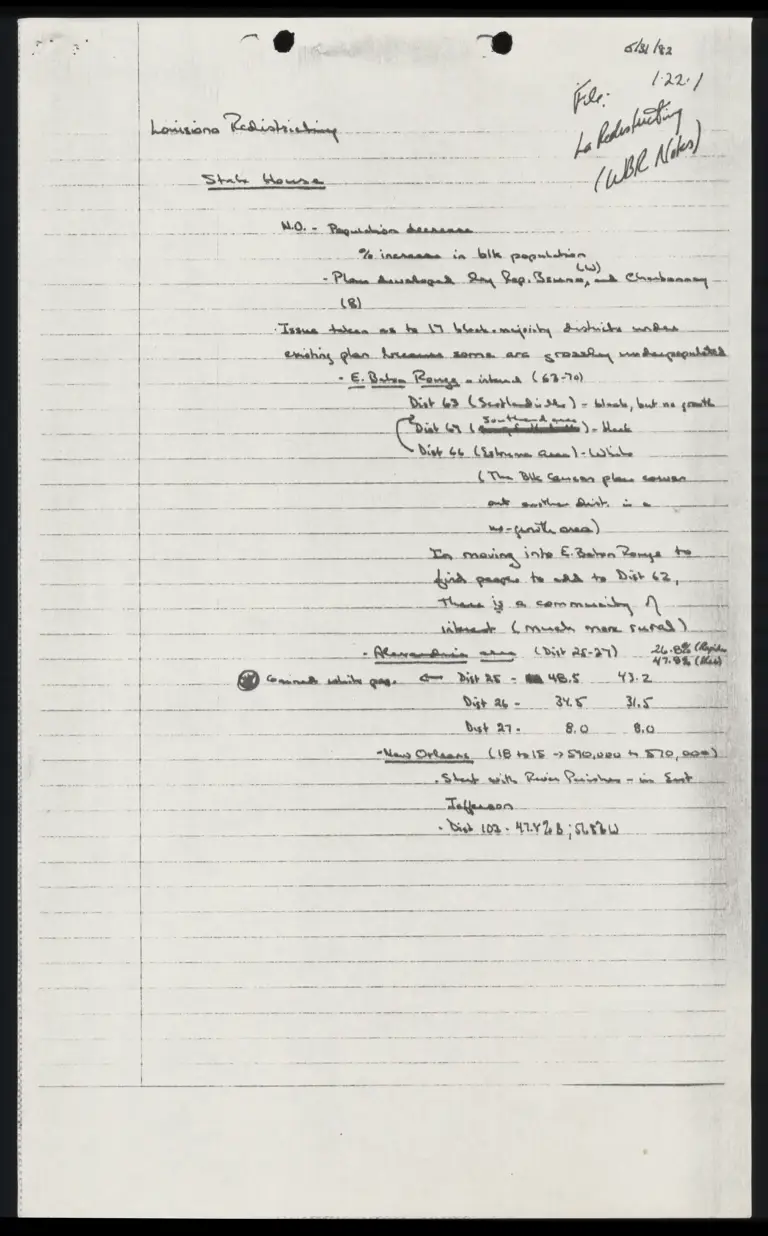 5/31/82
1.22.1
File:
La Redistricting
(WBR Notes)
Louisiana Redistricting
State House
N.O. - Population decrease
% increase in blk population
- Plan developed by Rep. Bruno, (W) and Charbonnay
(B)
Issue taken as to 17 black-majority districts under
existing plan because some are grossly underpopulated
- E. Baton Rouge - island (63-70)
Dist 63 (Scotlandville) - black, but no growth
Dist 67 (Southend area) - black
Dist 66 (area) - White
(The Blk Caucus plan carves
out another dist. in a
no-growth area)
In moving into E. Baton Rouge to
find people to add to Dist 62,
there is a community of
interest (much more rural)
- Alexandria area (Dist 25-27) 26.8% (Rapides
47.8% (Alex)
white pop. ← Dist 25 - 48.5 43.2
Dist 26 - 34.5 31.5
Dist 27 - 8.0 8.0
- New Orleans (18 to 15 → 590,000 to 570,000)
- Start with River Parishes - in East
Jefferson
- Dist 102 - 47.8% B; 51.8% W